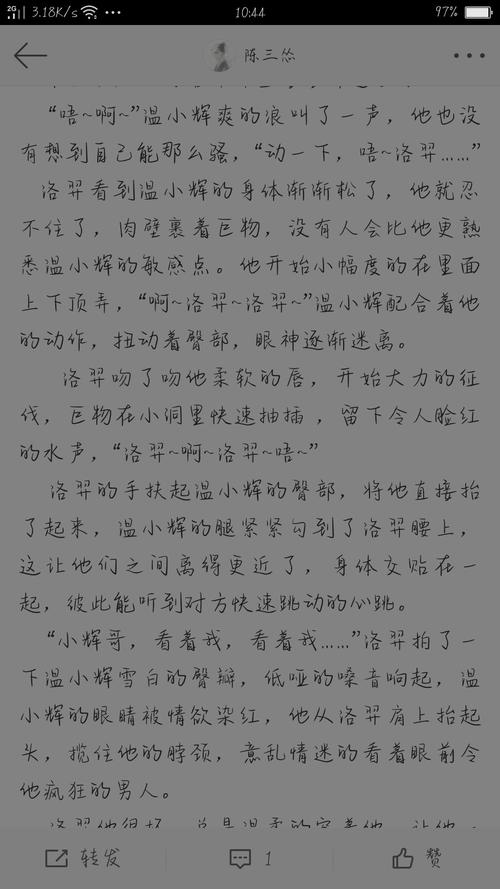 10:44
97%
3.18K/S
陈三怂
“唔~啊~”温小辉爽的浪叫了一声，他也没
有想到自己能那么骚，“动一下，唔~洛羿……”
洛羿看到温小辉的身体渐渐松了，他就忍
不住了，肉壁裹着巨物，没有人会比他更熟
悉温小辉的敏感点。他开始小幅度的在里面
上下顶弄，“啊~洛羿~洛羿~”温小辉配合着他
的动作，扭动着臀部，眼神逐渐迷离。
洛羿吻了吻他柔软的唇，开始大力的征
伐，巨物在小洞里快速抽插，留下令人脸红
的水声，“洛羿~啊~洛羿~唔~”
洛羿的手扶起温小辉的臀部，将他直接抬
了起来，温小辉的腿紧紧勾到了洛羿腰上，
这让他们之间离得更近了，身体交贴在一
起，彼此能听到对方快速跳动的心跳。
“小辉哥，看着我，看着我……”洛羿拍了一
下温小辉雪白的臀瓣，低哑的嗓音响起，温
小辉的眼睛被情欲染红，他从洛羿肩上抬起
头，揽住他的脖颈，意乱情迷的看着眼前令
他疯狂的男人。
转发
1
赞